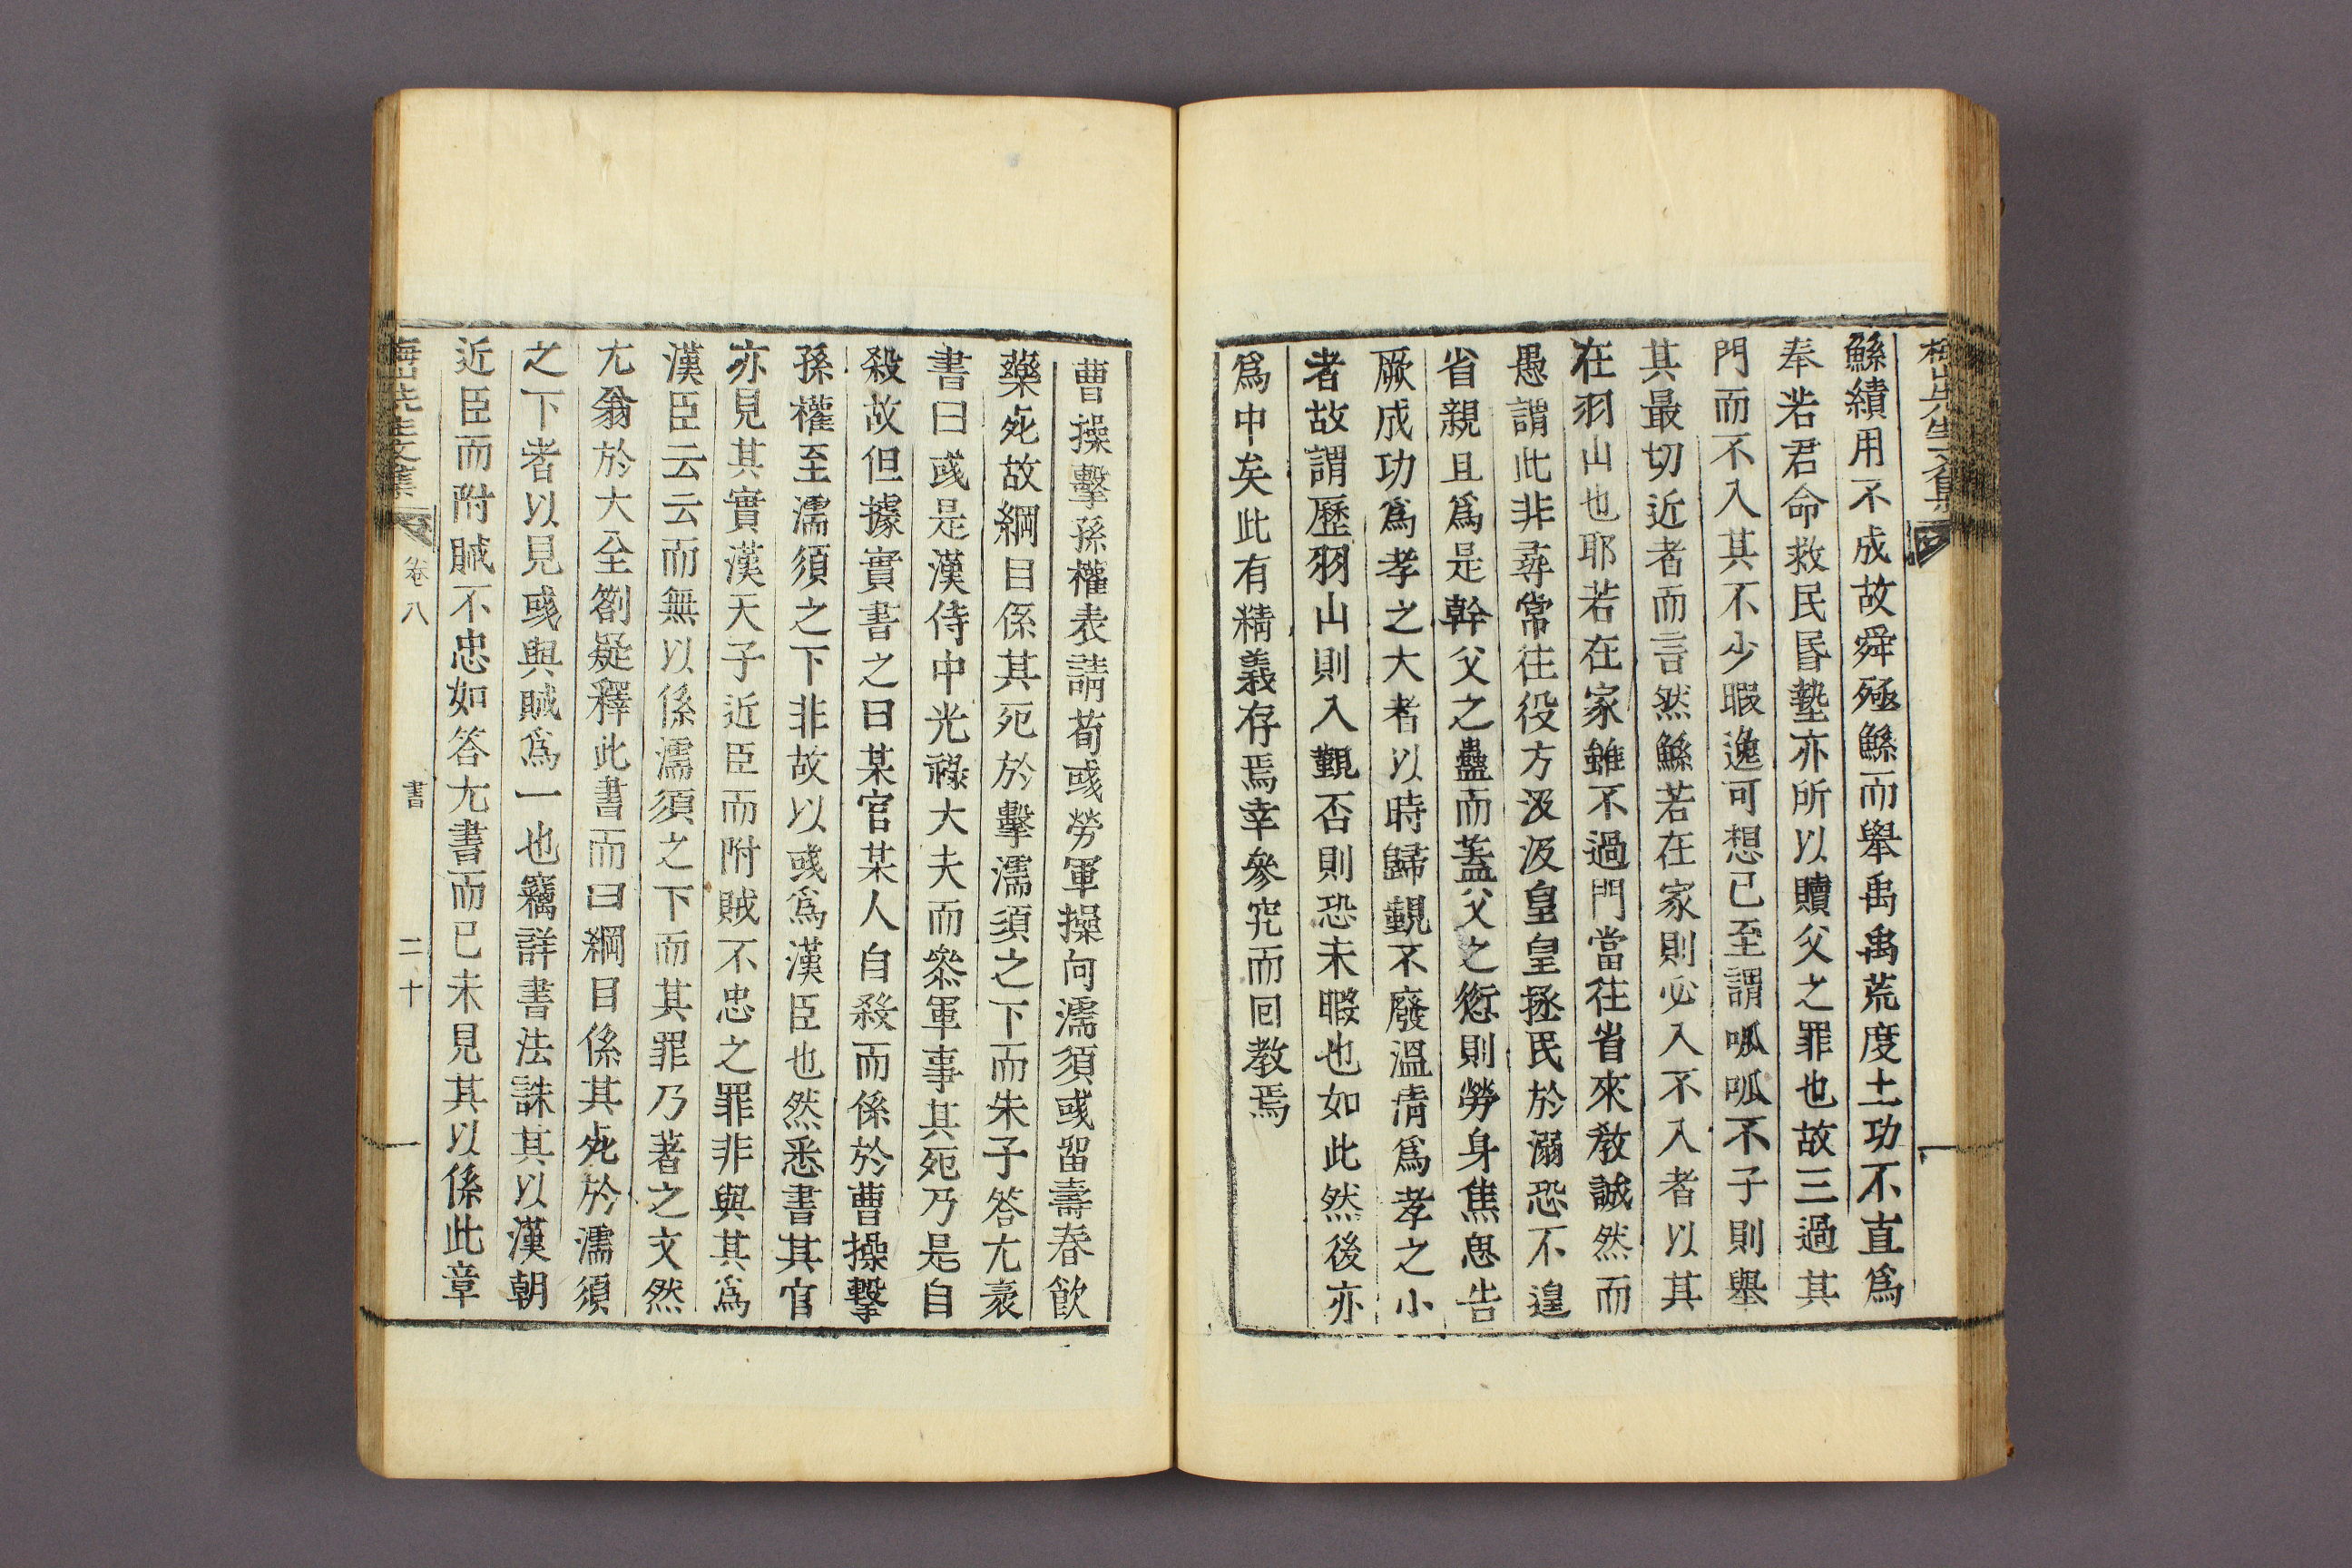 梅山先生文集
鯀績用不成故舜殛鯀而舉禹禹荒度土功不直爲
奉若君命救民昬墊亦所以贖父之罪也故三過其
門而不入其不少暇逸可想已至謂呱呱不子則舉
其最切近者而言然鯀若在家則必入不入者以其
在羽山也耶若在家雖不過門當往省來敎誠然而
愚謂此非尋常往役方汲汲皇皇拯民於溺恐不遑
省親且爲是幹父之蠱而蓋父之愆則勞身焦思告
厥成功爲孝之大者以時歸覲不廢溫凊爲孝之小
者故謂歷羽山則入覲否則恐未暇也如此然後亦
爲中矣此有精義存焉幸參究而回敎焉
曹操擊孫權表請荀彧勞軍操向濡須彧留壽春飮
藥死故綱目係其死於擊濡須之下而朱子答尤袤
書曰彧是漢侍中光祿大夫而叅軍事其死乃是自
殺故但據實書之曰某官某人自殺而係於曹操擊
孫權至濡須之下非故以彧爲漢臣也然悉書其官
亦見其實漢天子近臣而附賊不忠之罪非與其爲
漢臣云云而無以係濡須之下而其罪乃著之文然
尤翁於大全箚疑釋此書而曰綱目係其死於濡須
之下者以見彧與賊爲一也竊詳書法誅其以漢朝
近臣而附賊不忠如答尤書而已未見其以係此章
梅山先生文集 卷八 書 二十